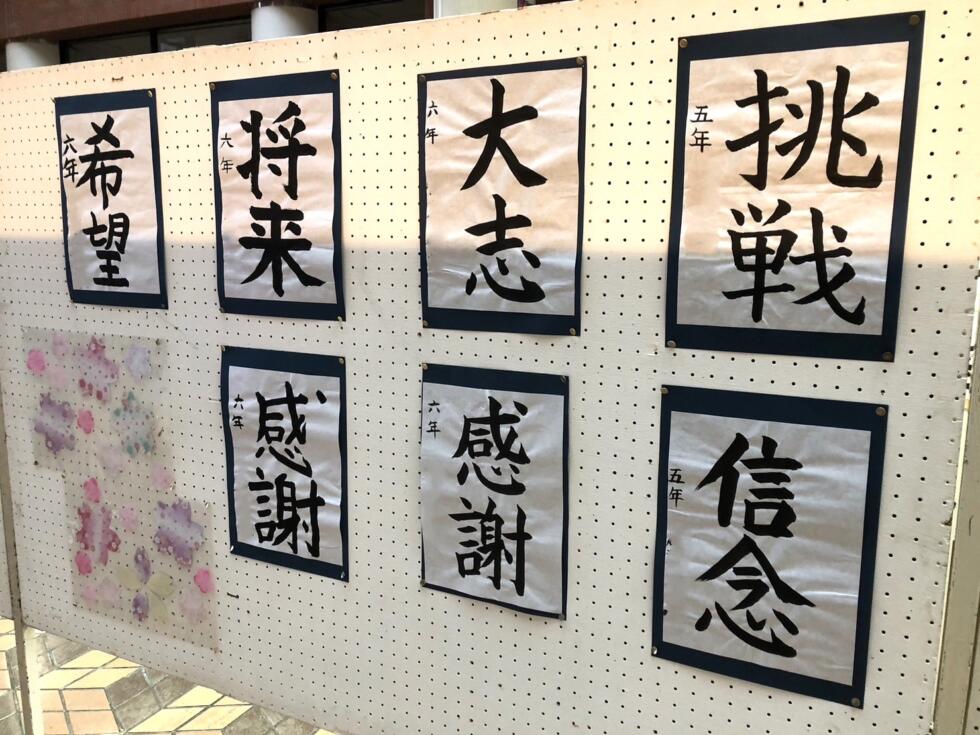 挑戦
五年
大志
六年
将来
六年
希望
六年
信念
五年
感謝
六年
感謝
六年